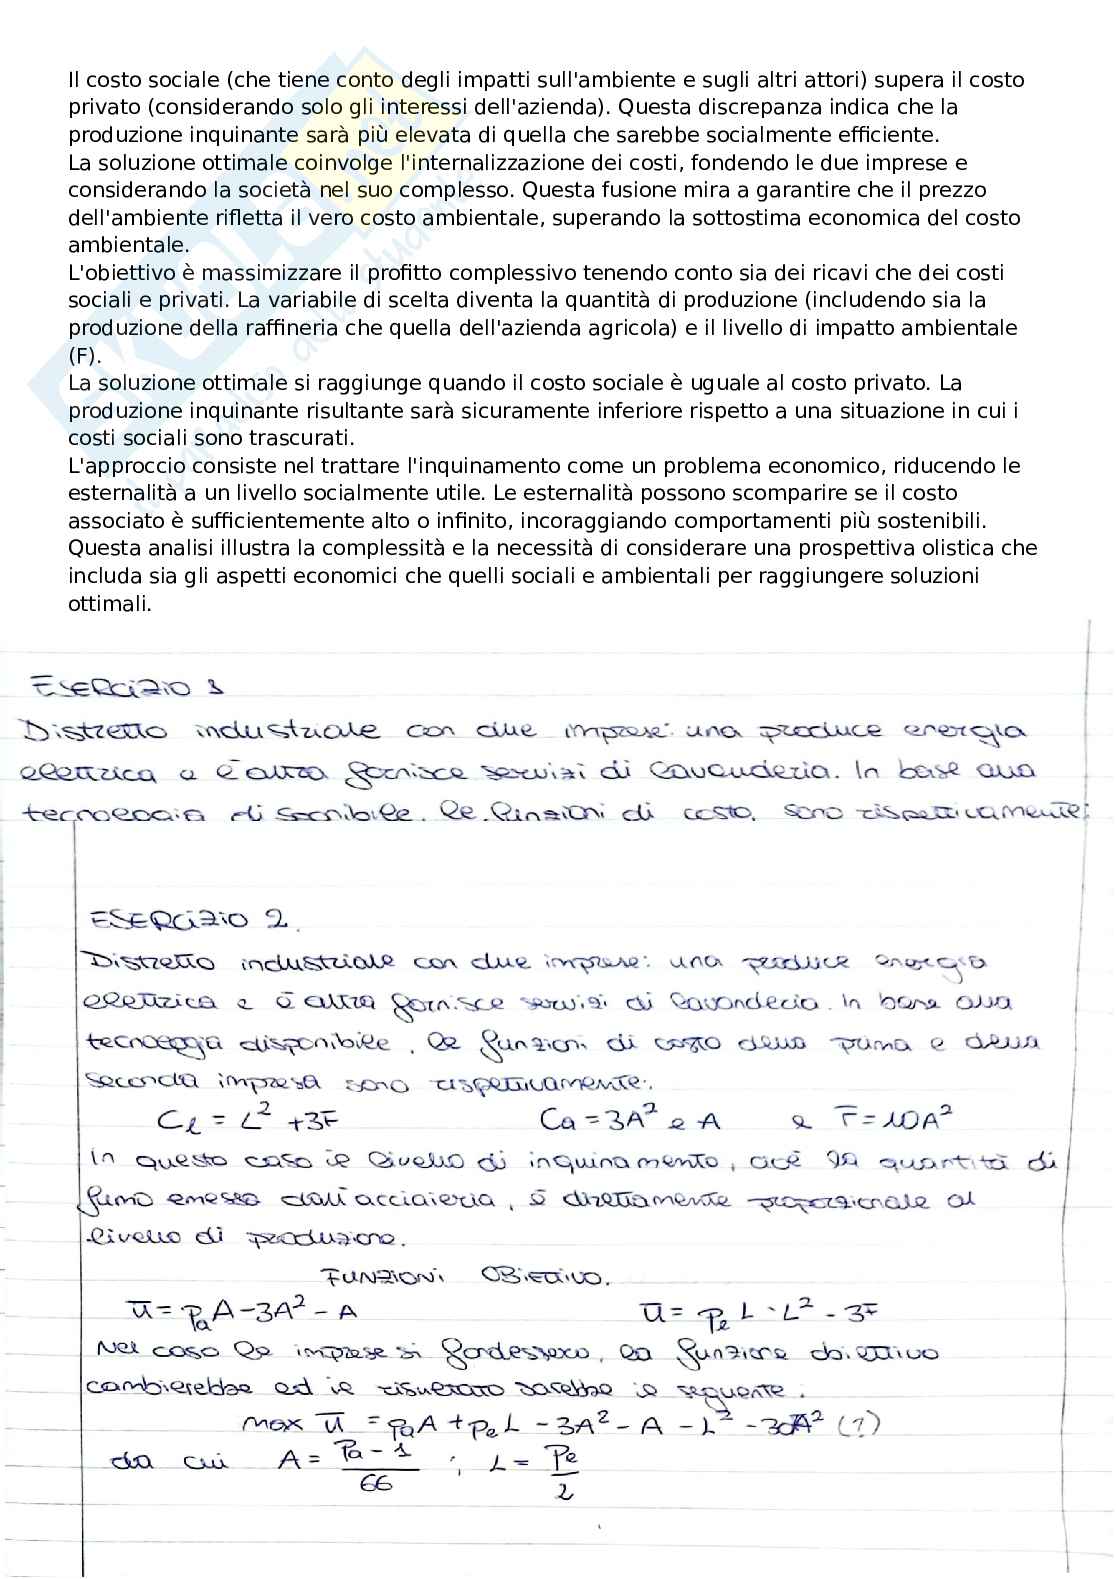 Il costo sociale (che tiene conto degli impatti sull'ambiente e sugli altri attori) supera il costo
privato (considerando solo gli interessi dell'azienda). Questa discrepanza indica che la
produzione inquinante sarà più elevata di quella che sarebbe socialmente efficiente.
La soluzione ottimale coinvolge l'internalizzazione dei costi, fondendo le due imprese e
considerando la società nel suo complesso. Questa fusione mira a garantire che il prezzo
dell'ambiente rifletta il vero costo ambientale, superando la sottostima economica del costo
ambientale.
L'obiettivo è massimizzare il profitto complessivo tenendo conto sia dei ricavi che dei costi
sociali e privati. La variabile di scelta diventa la quantità di produzione (includendo sia la
produzione della raffineria che quella dell'azienda agricola) e il livello di impatto ambientale
(F).
La soluzione ottimale si raggiunge quando il costo sociale è uguale al costo privato. La
produzione inquinante risultante sarà sicuramente inferiore rispetto a una situazione in cui i
costi sociali sono trascurati.
L'approccio consiste nel trattare l'inquinamento come un problema economico, riducendo le
esternalità a un livello socialmente utile. Le esternalità possono scomparire se il costo
associato è sufficientemente alto o infinito, incoraggiando comportamenti più sostenibili.
Questa analisi illustra la complessità e la necessità di considerare una prospettiva olistica che
includa sia gli aspetti economici che quelli sociali e ambientali per raggiungere soluzioni
ottimali.
ESERCIZIO 1
Distretto industriale con due imprese: una produce energia
elettrica e l'altra fornisce servizi di lavanderia. In base alla
tecnologia disponibile, le funzioni di costo, sono rispettivamente:
ESERCIZIO 2.
Distretto industriale con due imprese: una produce energia
elettrica e l'altra fornisce servizi di lavanderia. In base alla
tecnologia disponibile, le funzioni di costo della prima e della
seconda impresa sono rispettivamente:
Cl = L² + 3F Ca = 3A² e A e F = 10A²
In questo caso il livello di inquinamento, cioè la quantità di
fumo emesso dall'acciaieria, è direttamente proporzionale al
livello di produzione.
FUNZIONI OBIETTIVO.
π = PaA - 3A² - A π = Pe L - L² - 3F
Nel caso le imprese si fondessero, la funzione obiettivo
cambierebbe ed il risultato sarebbe il seguente:
max π = PaA + PeL - 3A² - A - L² - 30A² (?)
da cui A = Pa - 1 / 66 ; L = Pe / 2